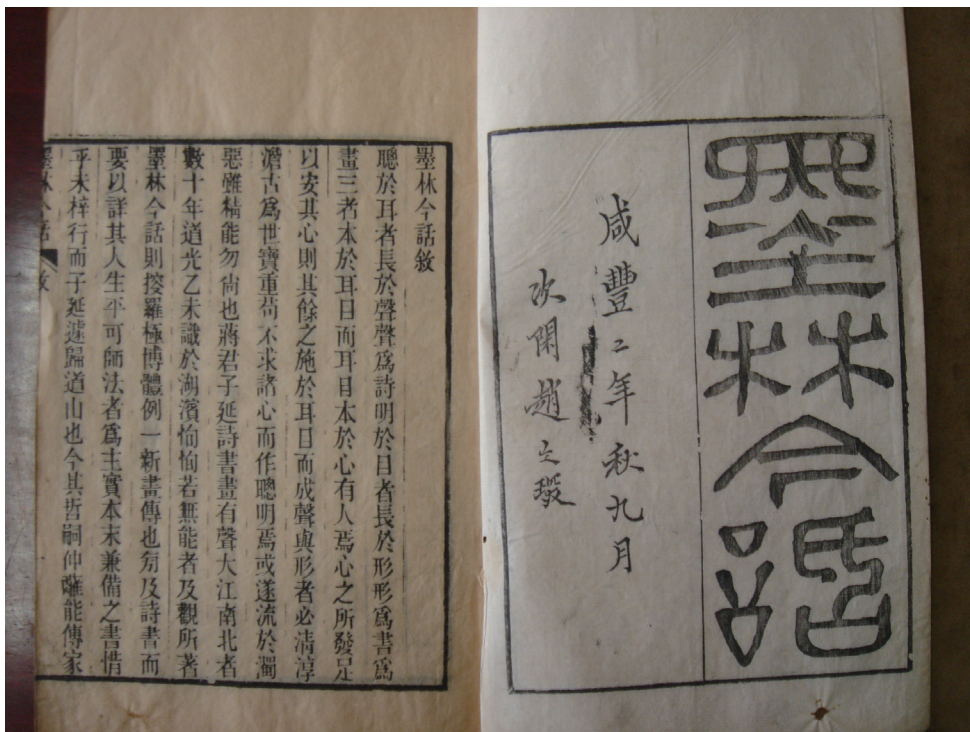 墨林今話
咸豐二年秋九月
次閑趙之琛
墨林今話敘
聰於耳者長於聲聲爲詩明於目者長於形形爲書爲
畫三者本於耳目而耳目本於心有人焉心之所發足
以安其心則其餘之施於耳目而成聲與形者必清淳
澹古爲世寶重苟不求諸心而作聰明焉或遂流於濁
惡雖精能勿尙也蔣君子延詩書畫有聲大江南北者
數十年道光乙未識於湖濱恂恂若無能者及觀所著
墨林今話則搜羅極博體例一新畫傳也旁及詩書而
要以詳其人生平可師法者爲主實本末兼備之書惜
乎未梓行而子延遽歸道山也今其哲嗣仲蘺能傳家
墨林今話 敘